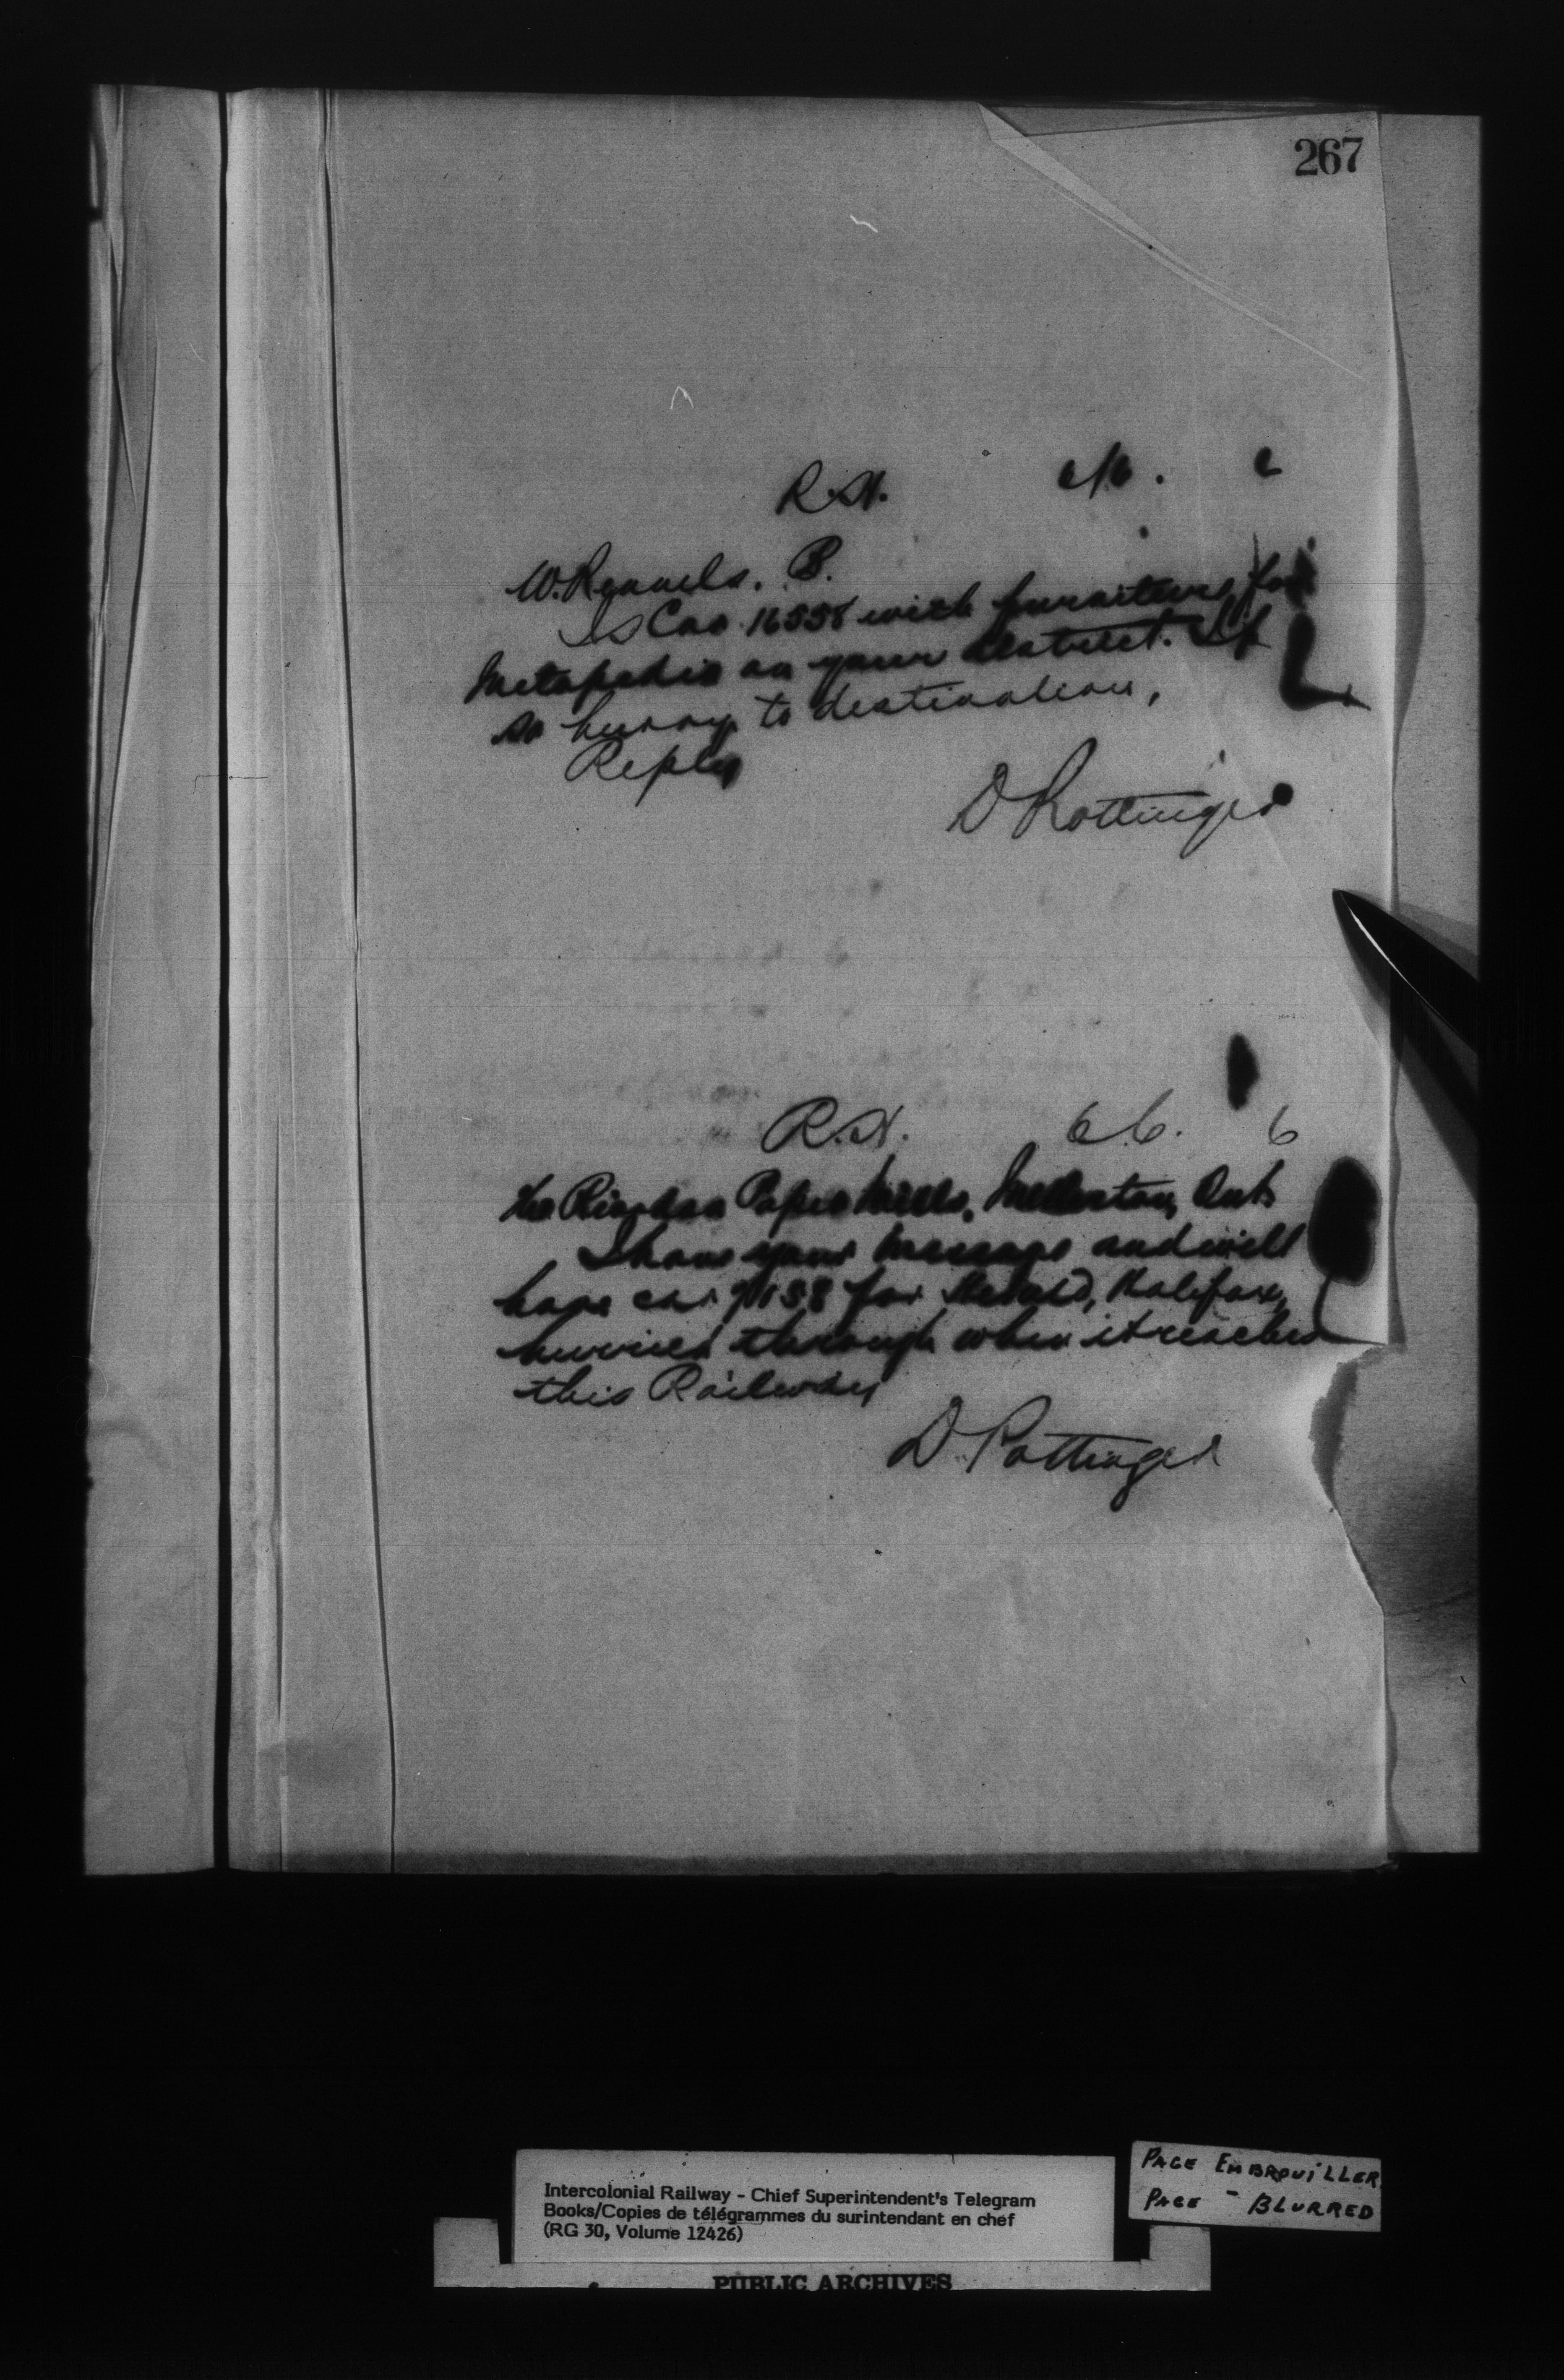 267
R.N. 6/6. 6
W. Rennels. B.
Is Car 16558 with furniture for
Metapedia on your district. If
so hurry to destination,
Reply
D Pottinger
R.N. 6/6. 6
The Riordan Paper Mills, Merritton, Ont
I have your message and will
have car 9138 for Herald, Halifax,
hurried through when it reaches
this Railway
D. Pottinger
PAGE EMBROUILLER
PAGE - BLURRED
Intercolonial Railway - Chief Superintendent's Telegram
Books/Copies de télégrammes du surintendant en chef
(RG 30, Volume 12426)
PUBLIC ARCHIVES